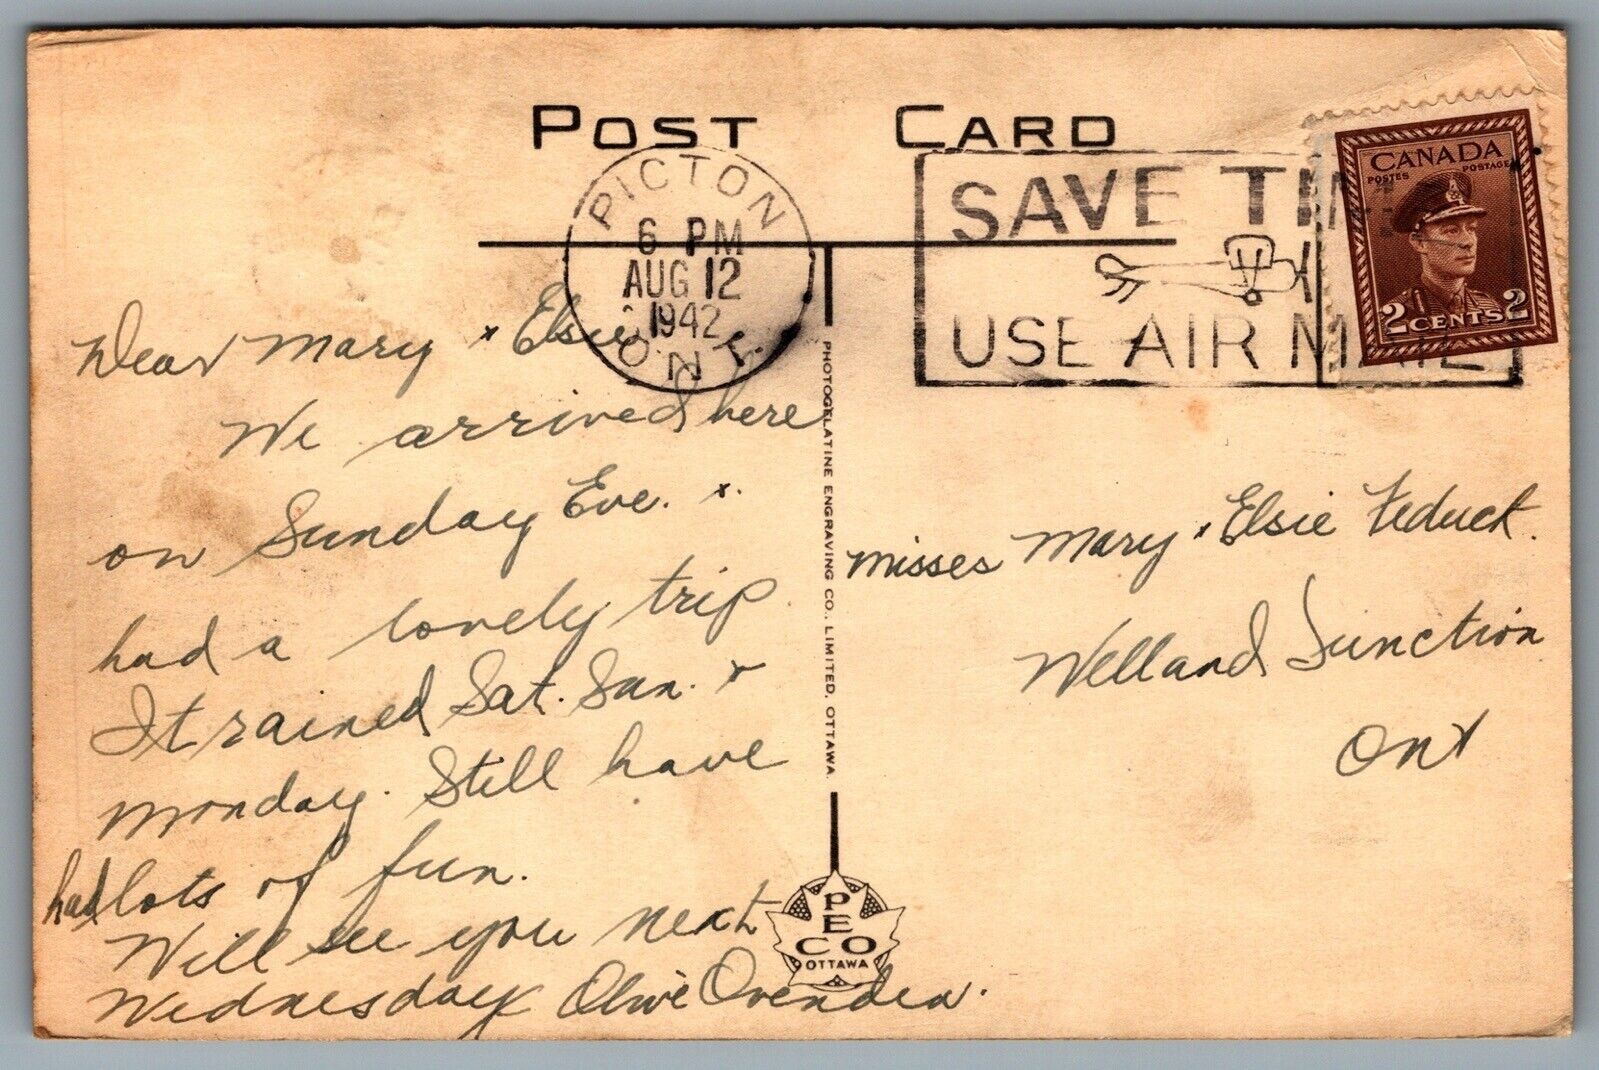 POST CARD
PICTON
6 PM
AUG 12
1942
ONT.
SAVE TIME
USE AIR MAIL
CANADA
POSTES POSTAGE
2 CENTS 2
Dear Mary & Elsie
We arrived here
on Sunday Eve. &
had a lovely trip
It rained Sat. Sun. &
Monday. Still have
had lots of fun.
Will see you next
Wednesday Olive Ovenden.
PHOTOGELATINE ENGRAVING CO., LIMITED, OTTAWA
PECO
OTTAWA
Misses Mary & Elsie Feduck.
Welland Junction
Ont